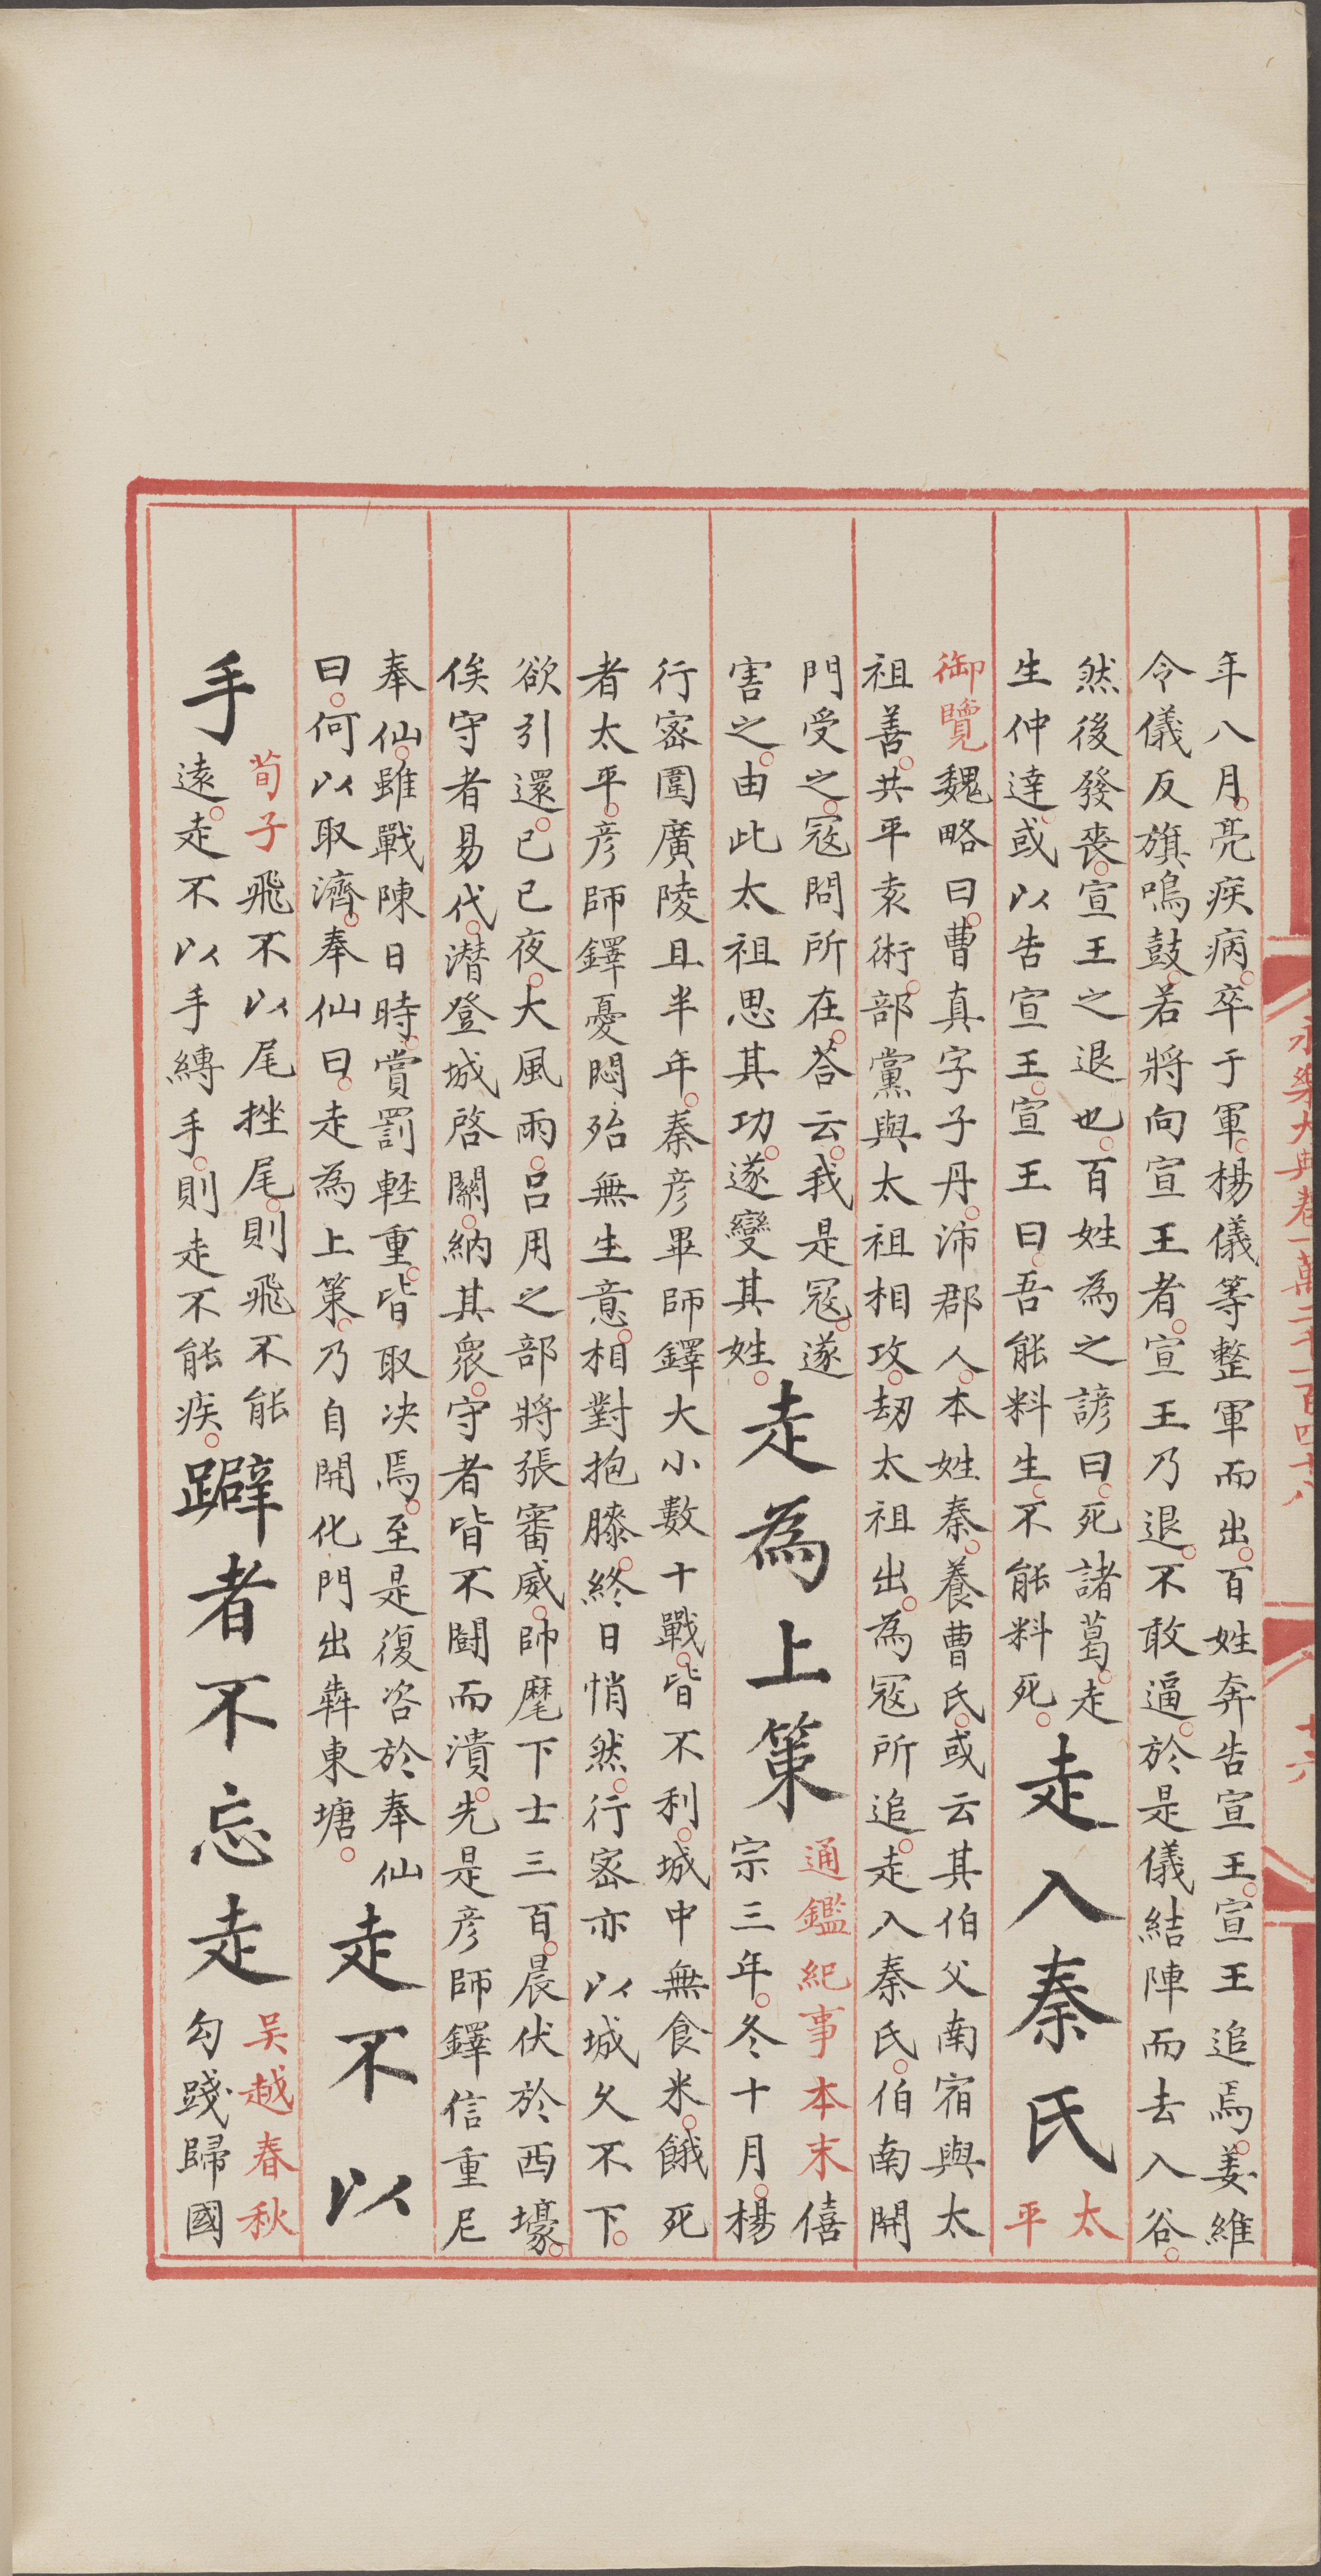 永樂大典卷一萬二千一百四十八
十六
年八月○亮疾病○卒于軍○楊儀等整軍而出○百姓奔告宣王○宣王追焉○姜維
令儀反旗鳴鼓○若將向宣王者○宣王乃退○不敢逼○於是儀結陣而去入谷○
然後發喪○宣王之退也○百姓為之諺曰○死諸葛○走
生仲達○或以告宣王○宣王曰○吾能料生○不能料死○
走入秦氏
太
平
御覽魏略曰○曹真字子丹○沛郡人○本姓秦○養曹氏○或云其伯父南宿與太
祖善○共平袁術○部黨與太祖相攻○劫太祖出○為寇所追○走入秦氏○伯南開
門受之○寇問所在○荅云○我是寇○遂
害之○由此太祖思其功○遂變其姓○
走為上策
通鑑紀事本末僖
宗三年○冬十月○楊
行密圍廣陵且半年○秦彥畢師鐸大小數十戰○皆不利○城中無食米○餓死
者太平○彥師鐸憂悶殆無生意○相對抱膝○終日悄然○行密亦以城久不下○
欲引還○已已夜○大風雨○呂用之部將張審威○帥麾下士三百○晨伏於西壕○
俟守者易代○潛登城啓關○納其眾○守者皆不鬬而潰○先是彥師鐸信重尼
奉仙○雖戰陳日時○賞罰輕重○皆取决焉○至是復咨於奉仙
曰○何以取濟○奉仙曰○走為上策○乃自開化門出犇東塘○
走不以
手
荀子飛不以尾挫尾○則飛不能
遠○走不以手縛手○則走不能疾○
躃者不忘走
吴越春秋
勾踐歸國